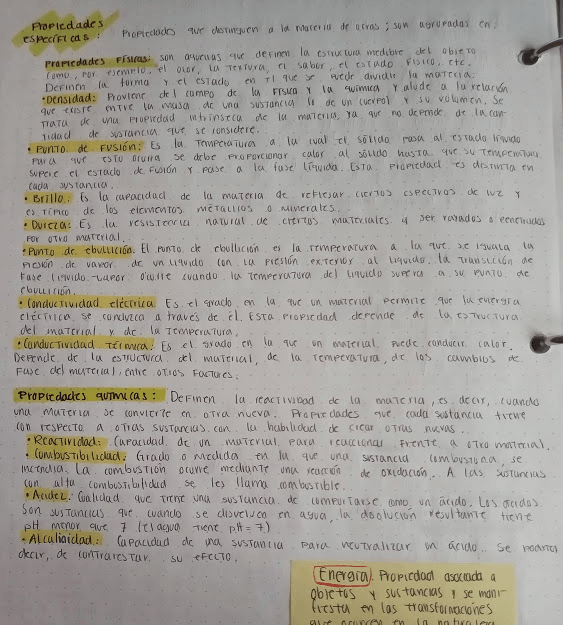 Propiedades
específicas: Propiedades que distinguen a la materia de otras; son agrupadas en:
Propiedades Físicas: son aquellas que definen la estructura medible del objeto
como, por ejemplo, el olor, la textura, el sabor, el estado físico, etc.
Definen la forma y el estado en el que se puede dividir la materia.
•Densidad: Proviene del campo de la física y la química y alude a la relación
que existe entre la masa de una sustancia (o de un cuerpo) y su volumen. Se
trata de una propiedad intrínseca de la materia, ya que no depende de la can-
tidad de sustancia que se considere.
• Punto de Fusión: Es la temperatura a la cual el sólido pasa al estado líquido
Para que esto ocurra se debe proporcionar calor al sólido hasta que su temperatura
supere el estado de fusión y pase a la fase líquida. Esta propiedad es distinta en
cada sustancia.
• Brillo: Es la capacidad de la materia de reflejar ciertos espectros de luz y
es típico de los elementos metálicos o minerales.
• Dureza: Es la resistencia natural de ciertos materiales a ser rayados o penetrados
por otro material.
•Punto de ebullición: El punto de ebullición es la temperatura a la que se iguala la
presión de vapor de un líquido con la presión exterior al líquido. la transición de
fase líquido-vapor ocurre cuando la temperatura del líquido supera a su punto de
ebullición.
• Conductividad eléctrica Es el grado en la que un material permite que la energía
eléctrica se conduzca a través de él. Esta propiedad depende de la estructura
del material y de la temperatura.
•Conductividad Térmica: Es el grado en la que un material puede conducir calor.
Depende de la estructura del material, de la temperatura, de los cambios de
fase del material, entre otros factores.
Propiedades químicas: Definen la reactividad de la materia, es decir, cuando
una materia se convierte en otra nueva. Propiedades que cada sustancia tiene
con respecto a otras sustancias con la habilidad de crear otras nuevas.
• Reactividad: Capacidad de un material para reaccionar frente a otro material.
• Combustibilidad: Grado o medida en la que una sustancia combustiona, se
incendia. La combustión ocurre mediante una reacción de oxidación. A las sustancias
con alta combustibilidad se les llama combustible.
• Acidez: Cualidad que tiene una sustancia de comportarse como un ácido. Los ácidos
son sustancias que cuando se disuelven en agua, la disolución resultante tiene
pH menor que 7 (el agua tiene pH = 7)
• Alcalinidad: Capacidad de una sustancia para neutralizar un ácido. Se
decir, de contrarrestar su efecto.
Energía. Propiedad asociada a
objetos y sustancias y se mani-
fiesta en las transformaciones
que ocurren en la naturaleza